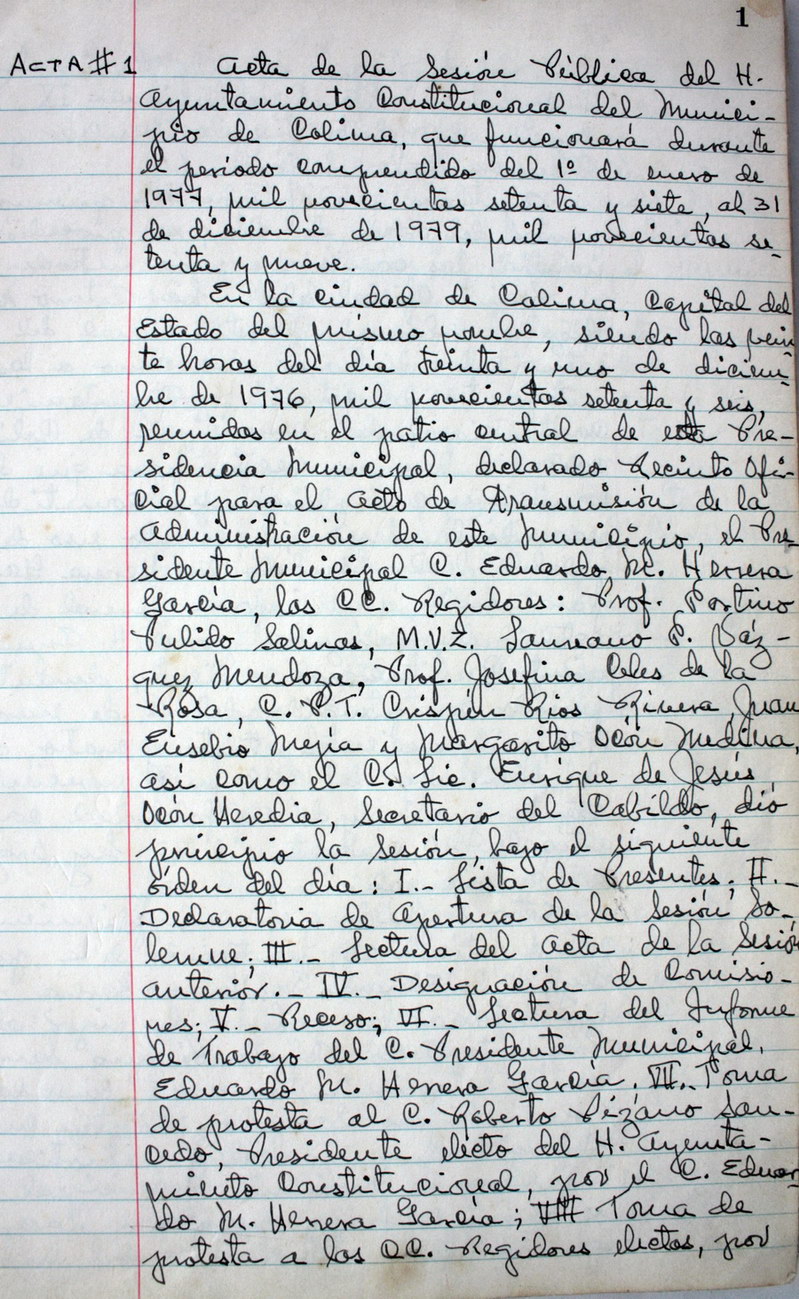 1
ACTA # 1 Acta de la Sesión Pública del H.
Ayuntamiento Constitucional del Munici-
pio de Colima, que funcionará durante
el período comprendido del 1º de enero de
1977, mil novecientos setenta y siete, al 31
de diciembre de 1979, mil novecientos se-
tenta y nueve.
En la ciudad de Colima, Capital del
Estado del mismo nombre, siendo las vein
te horas del día treinta y uno de diciem-
bre de 1976, mil novecientos setenta y seis,
reunidos en el patio central de esta Pre-
sidencia Municipal, declarado Recinto Ofi-
cial para el acto de Transmisión de la
Administración de este Municipio, el Pre-
sidente Municipal C. Eduardo M. Herrera
García, los CC. Regidores: Prof. Portino
Pulido Salinas, M.V.Z. Laureano P. Váz-
quez Mendoza, Prof. Josefina Celes de la
Rosa, C. P.T. Crispín Rios Rivera, Juan
Eusebio Mejía y Margarito Ocón Medina,
así como el C. Lic. Enrique de Jesús
Ocón Heredia, Secretario del Cabildo, dió
principio la Sesión, bajo el siguiente
órden del día: I.- Lista de Presentes; II.-
Declaratoria de apertura de la Sesión So-
lemne; III.- Lectura del acta de la Sesión
anterior.- IV.- Designación de Comisio-
nes; V.- Receso; VI.- Lectura del Informe
de Trabajo del C. Presidente Municipal,
Eduardo M. Herrera García. VII.- Toma
de protesta al C. Roberto Pizano Sau-
cedo, Presidente electo del H. Ayunta-
miento Constitucional, por el C. Eduar-
do M. Herrera García; VIII Toma de
protesta a los CC. Regidores electos, por